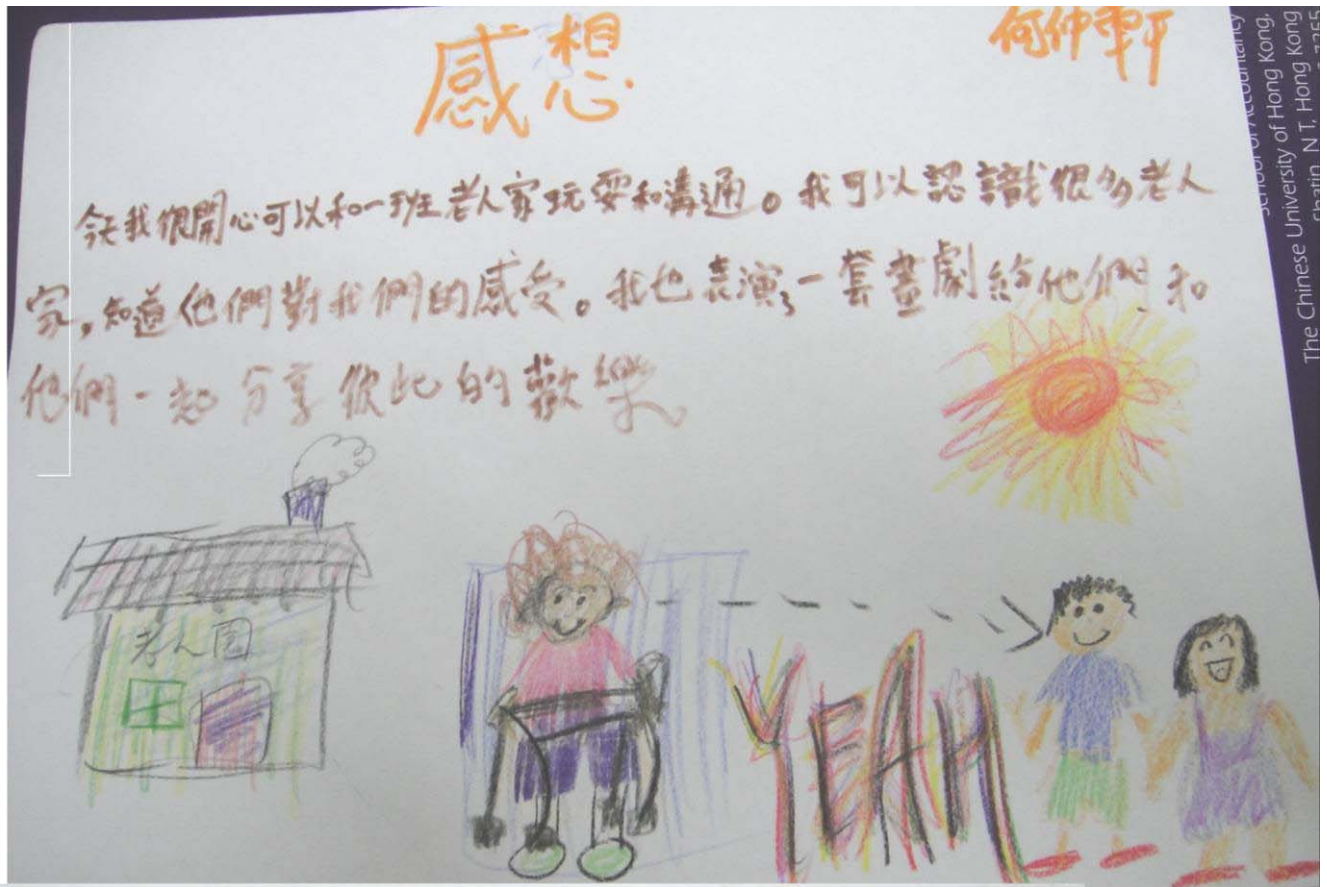 感想
何仲軒
今天我很開心可以和一班老人家玩耍和溝通。我可以認識很多老人
家,知道他們對我們的感受。我也表演了一套話劇給他們,和
他們一起分享彼此的歡樂。
老人園
YEAH
School of Accountancy
The Chinese University of Hong Kong,
Shatin, N T, Hong Kong